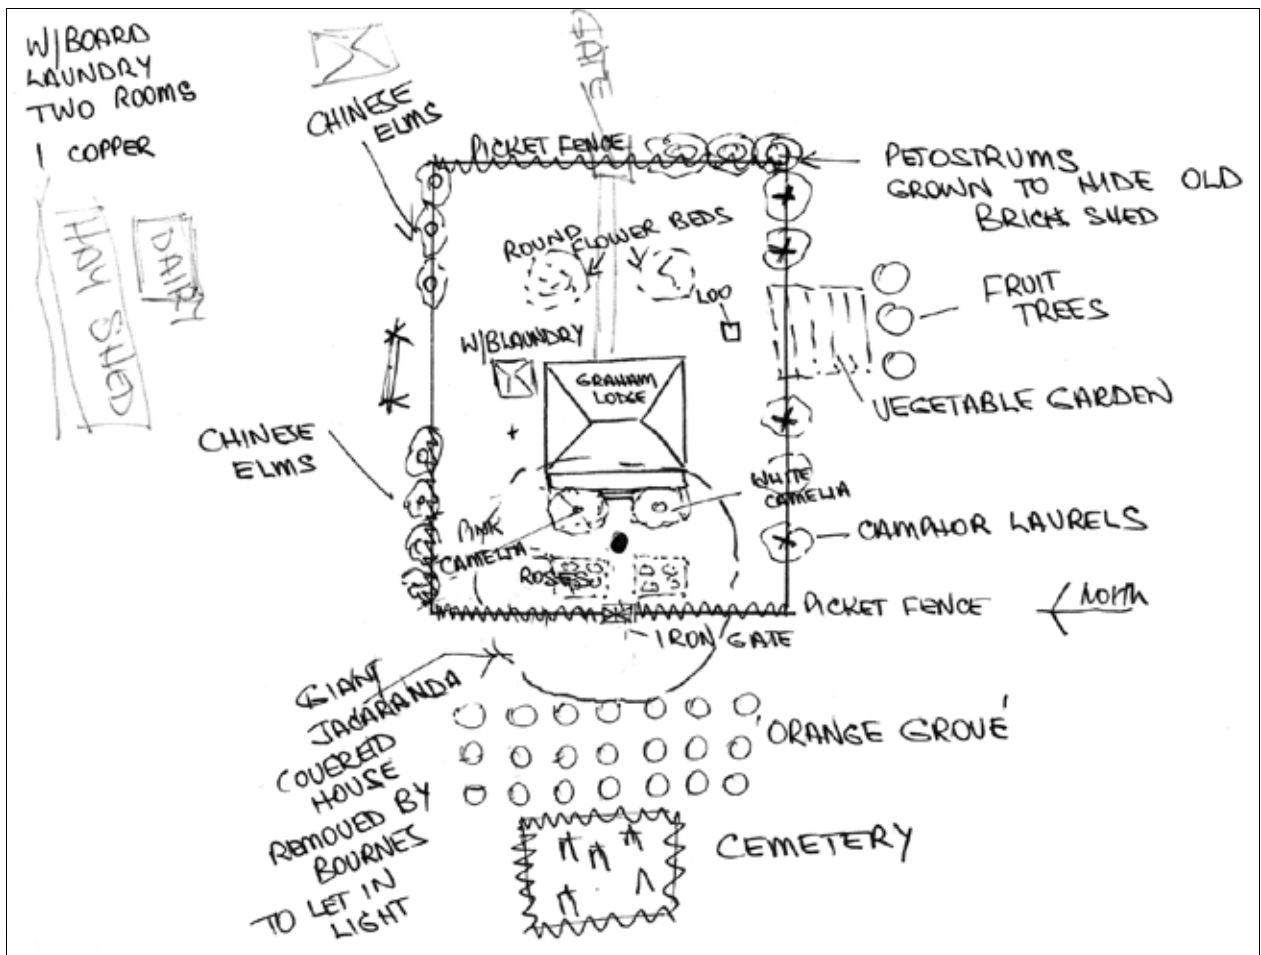 W/BOARD
LAUNDRY
TWO ROOMS
1 COPPER
GATE
CHINESE
ELMS
PICKET FENCE
PETOSTRUMS
GROWN TO HIDE OLD
BRICK SHED
HAY SHED
DAIRY
ROUND FLOWER BEDS
LOO
FRUIT
TREES
W/B LAUNDRY
GRAHAM
LODGE
VEGETABLE GARDEN
CHINESE
ELMS
WHITE
CAMELIA
PINK
CAMELIA
CAMPHOR LAURELS
ROSES
PICKET FENCE
NORTH
IRON GATE
GIANT
JACARANDA
COVERED
HOUSE
REMOVED BY
BOURNES
TO LET IN
LIGHT
'ORANGE GROVE'
CEMETERY